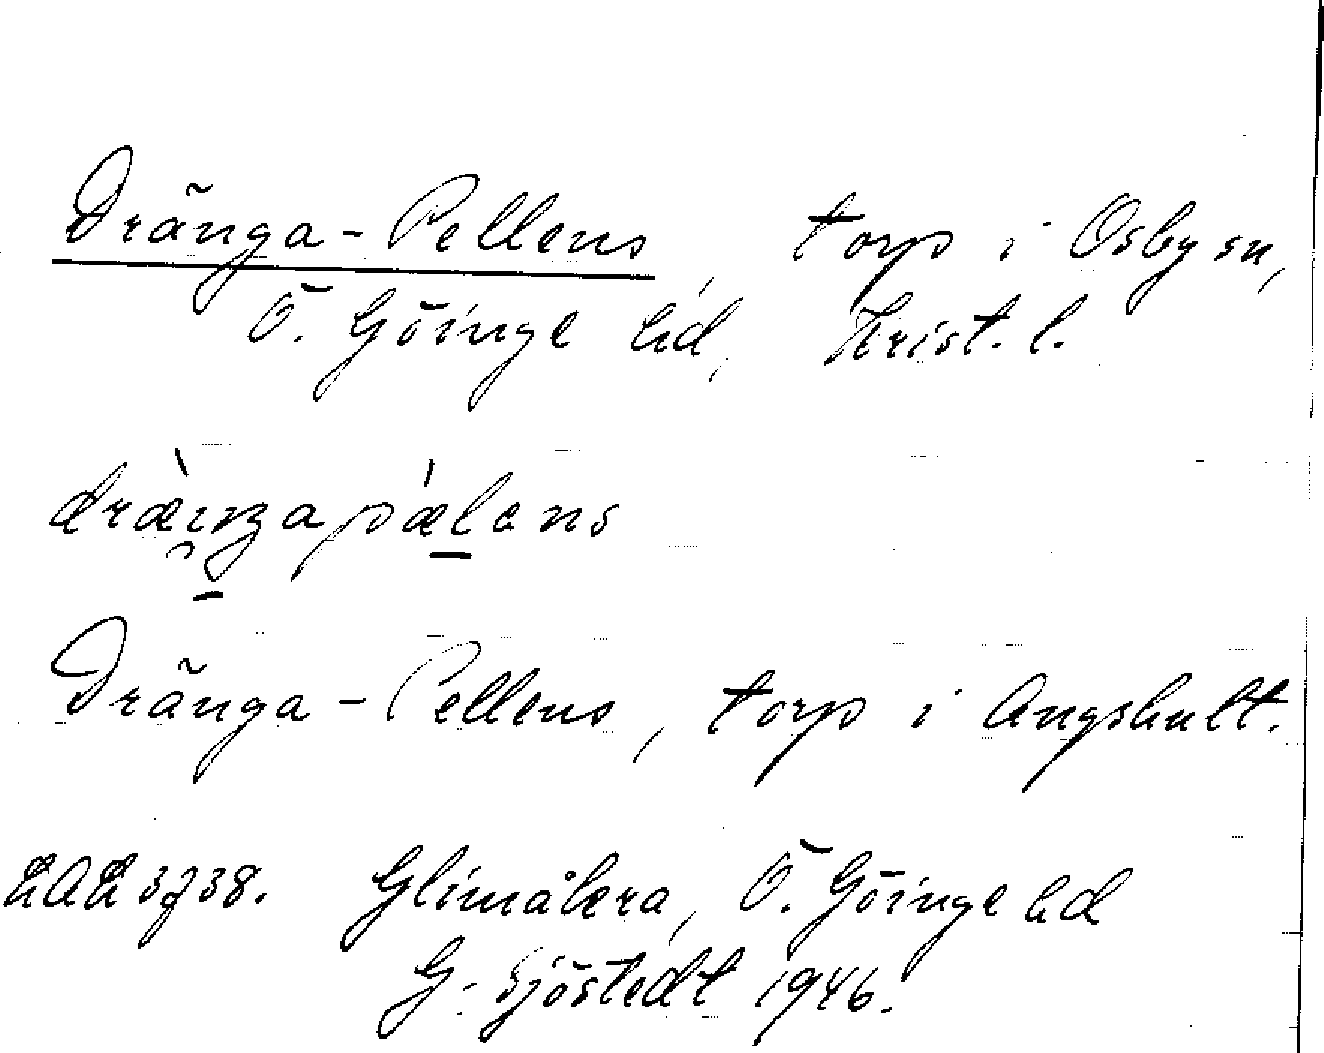 Dränga-Pellens, torp i Osby sn,
Ö. Göinge hd, Krist. l.
dräiŋapælens
Dränga-Pellens, torp i Angshult.
LAL 3738. Glimåkra, Ö. Göinge hd
G. Sjöstedt 1946.